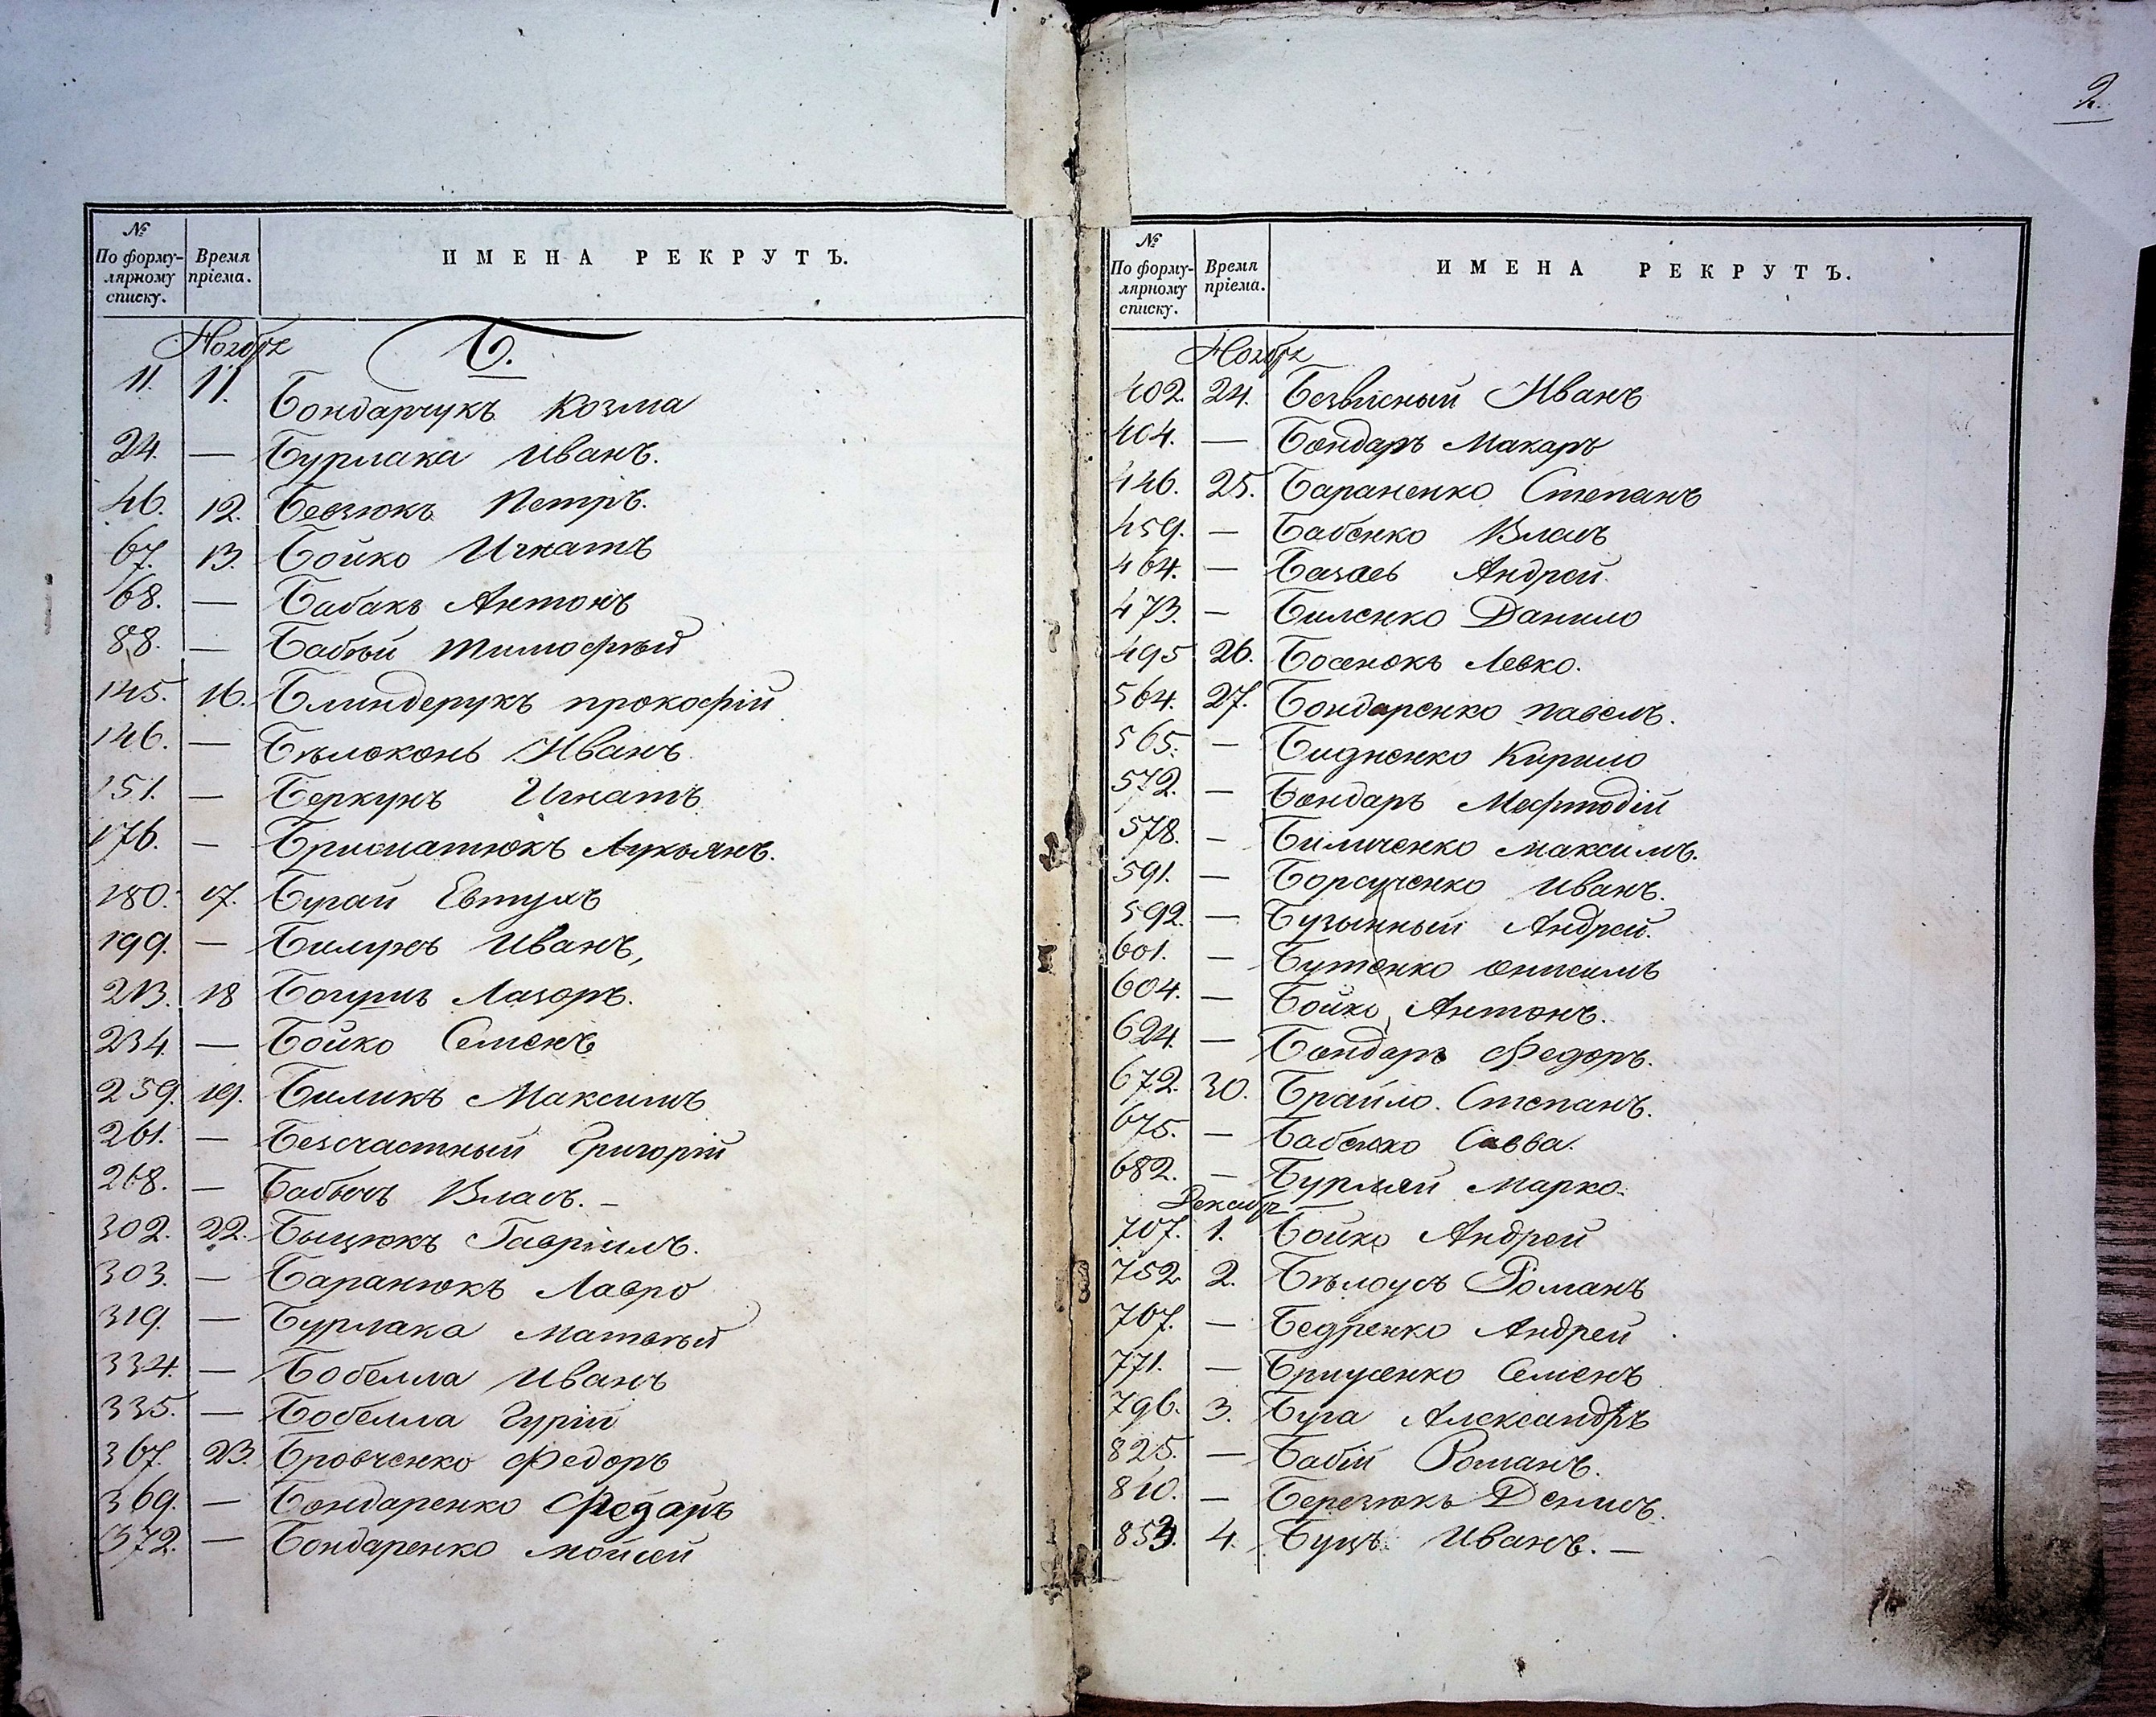 2.
№ По форму-лярному списку. Время пріема. ИМЕНА РЕКРУТЪ.
Ноября Б.
11. 11. Бондарчукъ Козма
24. — Бурлака Иванъ.
46. 12. Безюкъ Петръ.
67. 13. Бойко Игнатъ
68. — Бабакъ Антонъ
88. — Бабъй Тимофѣй
145. 16. Блиндерукъ прокофій
146. — Бѣлоконь Иванъ.
151. — Беркунъ Игнатъ
176. — Лукьянъ.
180. 17. Бугай Евтухъ
199. — Иванъ,
213. 18 Лазоръ.
234. — Бойко Семенъ
259. 19. Биликъ Максимъ
261. — Безсчастный Григорій
268. — Бабычъ Власъ. —
302. 22. Быцюкъ Гавріилъ.
303. — Баранюкъ Лавро
319. — Бурлака Матвѣй
334. — Бобелла Иванъ
335. — Бобелла Гурій
367. 23. Бровченко Федоръ
369. — Бондаренко Федоръ
372. — Бондаренко Мойсей
№ По форму-лярному списку. Время пріема. ИМЕНА РЕКРУТЪ.
Ноября
402. 24. Иванъ
404. — Бондаръ Макаръ
446. 25. Бараненко Степанъ
459. — Бабенко Власъ
464. — Андрей
473. — Биленко Данило
495 26. Левко.
564. 27. Бондаренко павелъ.
565. — Бидненко Кирило
572. — Бондаръ Мефтодій
578. — Биличенко максимъ.
591. — Борсученко Иванъ.
592. — Андрей.
601. — Бутенко онисимъ
604. — Бойко Антонъ.
624. — Бондаръ Федоръ.
672. 30. Брайло. Степанъ.
675. — Бабенко Савва.
682. — Бурлай Марко.
Декабря
707. 1. Бойко Андрей
752 2. Бѣлоусъ Романъ
767. — Бедренко Андрей
771. — Семенъ
796. 3. Буга Александръ
825. — Бабій Романъ.
840. — Березюкъ Денисъ.
853. 4. Буцъ Иванъ. —